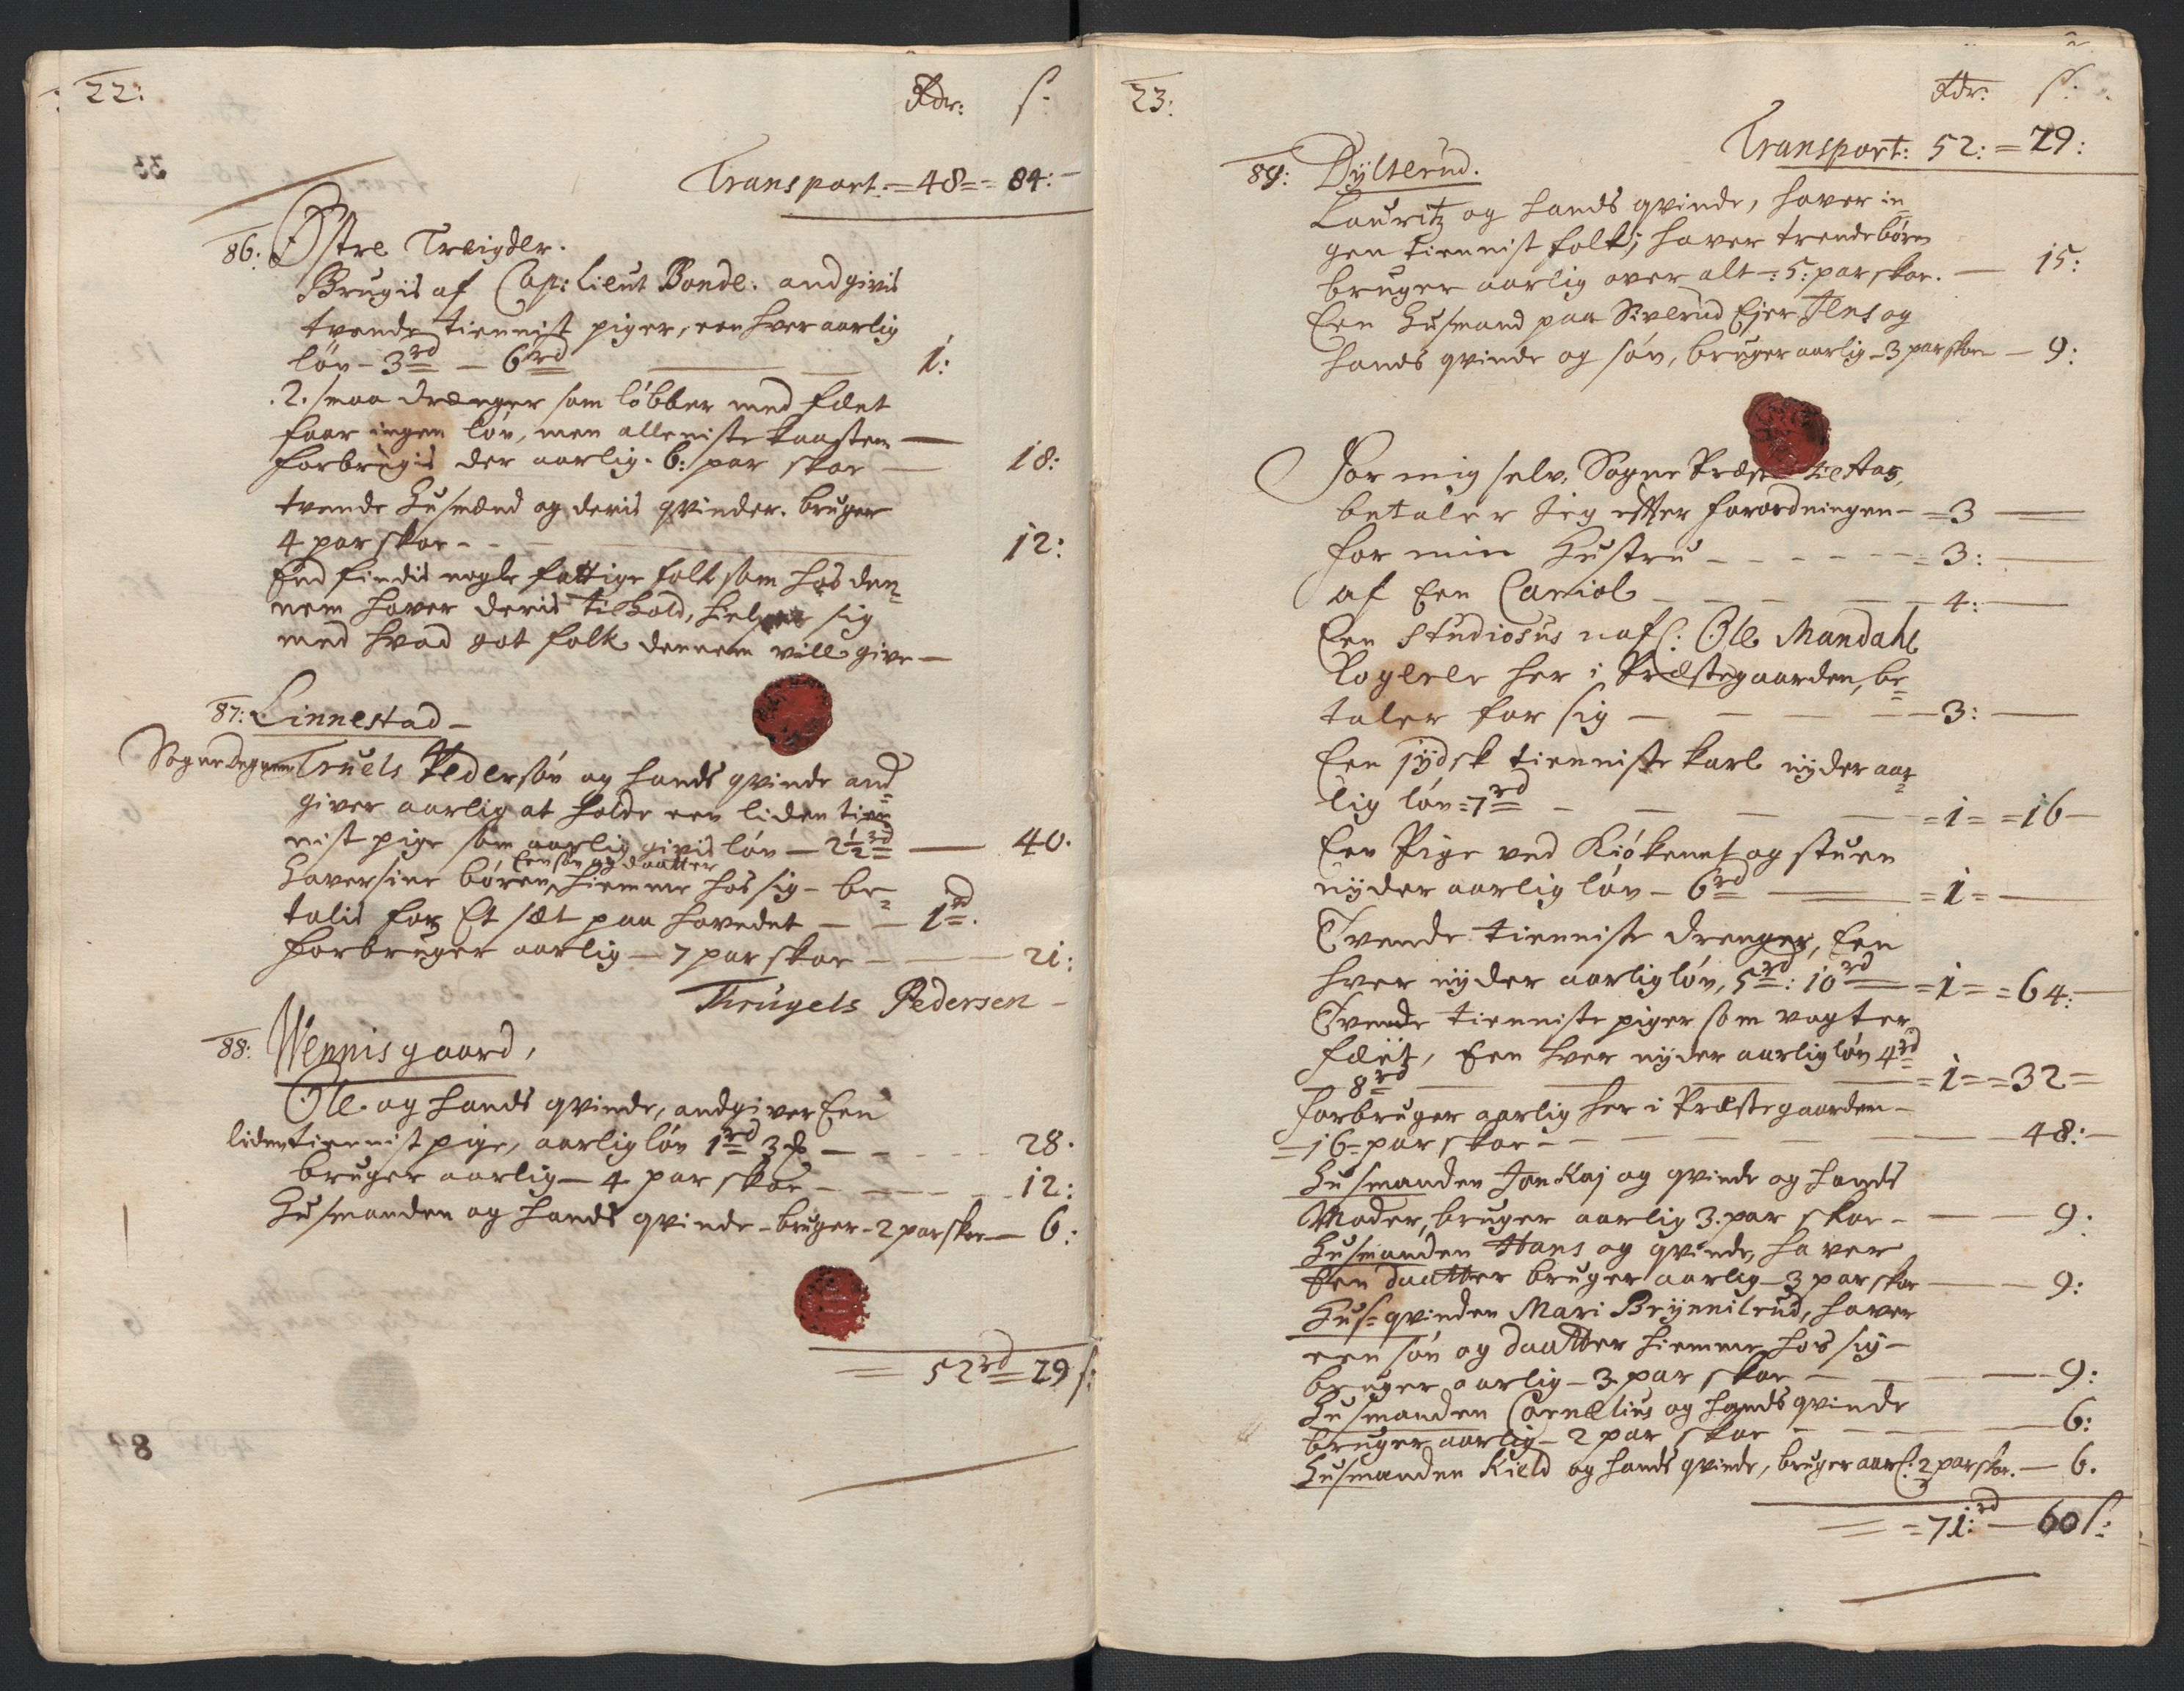 22:
Rdr: s:
Transport. = 48 = = 84: -
86. Østre Treigder.
Brugis af Cap: Lieut Bonde. andgivis
tvende tiennist piger, een hver aarlig
løn - 3 rd - 6 rd — 1:
.2. smaa drænger som løbber med fæet
faar ingen løn, men alleniste kaasten —
forbrugis der aarlig. 6: par skoe — 18:
tvende Husmænd og deris qvinder. bruger
4 par skoe - - — 12:
End findis nogle fattige folk som hos den=
nem haver deris tilhold, hielper sig
med hvad got folk dennem vill give —
87: Linnestad -
Sognedegnen Truels Pedersøn og hands qvinde and=
giver aarlig at holde een liden tien
nist pige som aarlig givis løn — 2½ rd — 40.
Een søn og daatter
Haver sine børen, hiemme hos sig - be=
talis for Et sæt paa hovedet — — 1 rd.
forbruger aarlig — 7 par skoe — — 21:
Thrugels Pedersen -
88: Wennisgaard,
Ole og hands qvinde, andgiver Een
liden tiennist pige, aarlig løn 1 rd 3 — 28.
bruger aarlig — 4 par skoe — — 12:
Husmanden og hands qvinde - bruger - 2 par skoe — 6:
= 52 rd = 29 s:
23:
Rdr: s:
Transport: 52: = 29:
89: Dÿlterud.
Lauritz og hands qvinde, haver in=
gen tiennist folk; haver trende børn
bruger aarlig over alt -: 5: par skoe. — 15:
Een Husmand paa Siverud Ejer Jens og
hands qvinde og søn, bruger aarlig - 3 par skoe — 9:
For mig selv, Sogne Præst til Hog,
betaler Jeg efter forordningen - = 3 —
for min Hustru - - - - - = 3: —
af Een Cariol — — — 4: —
Een Studiosus nafl: Ole Mandahl
Logerer her i Præstegaarden, be=
taler for sig — — — 3: —
Een jÿdsk tienniste karl nÿder aar=
lig løn = 7 rd — — = 1 = = 16 —
Een Pige ved Kiøkenet og stuen
nÿder aarlig løn - 6 rd — = 1 = —
Tvende tienniste drenger, Een
hver nÿder aarlig løn, 5 rd: 10 rd — = 1 = = 64: —
Tvende tienniste piger som vagter
fæet, Een hver nÿder aarlig løn 4 rd
8 rd — — = 1 = = 32 =
forbruger aarlig her i Præstegaarden —
= 16 = par skoe - - — — 48: —
Husmanden Jon Kaj og qvinde og hands
Moder, bruger aarlig 3. par skoe - — 9.
Husmanden Hans og qvinde, haver
Een daatter bruger aarlig - 3 par skoe — 9:
Hus= qvinden Mari Brÿnnilrud, haver
een søn og daatter hiemme hos sig -
bruger aarlig - 3 par skoe — — 9:
Husmanden Cornelius og hands qvinde
bruger aarlig - 2 par skoe - — — 6:
Husmanden Kield og hands qvinde, bruger aarl: 2 par skoe. — 6.
= 71: rd — 60 s: